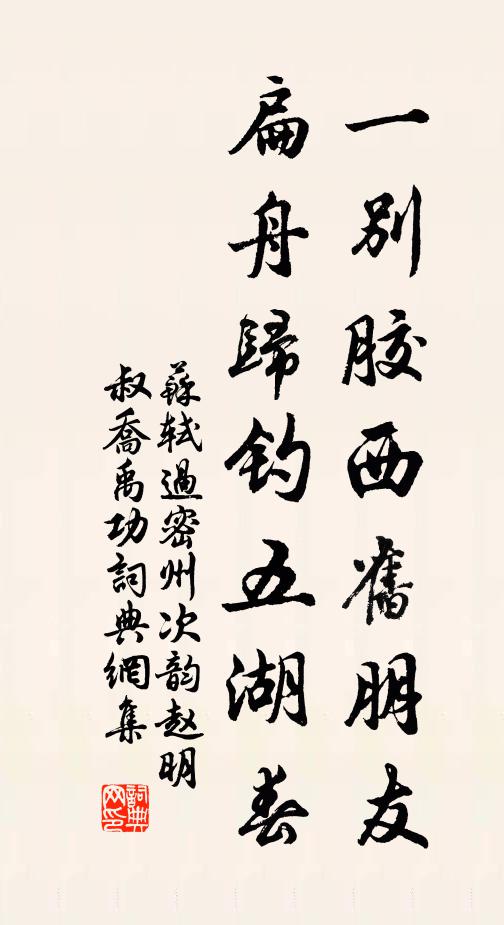 一别胶西舊朋友
扁舟歸钓五湖春
蘇轼過密州次韵赵明
叔喬禹功詞典網集
詞典网印